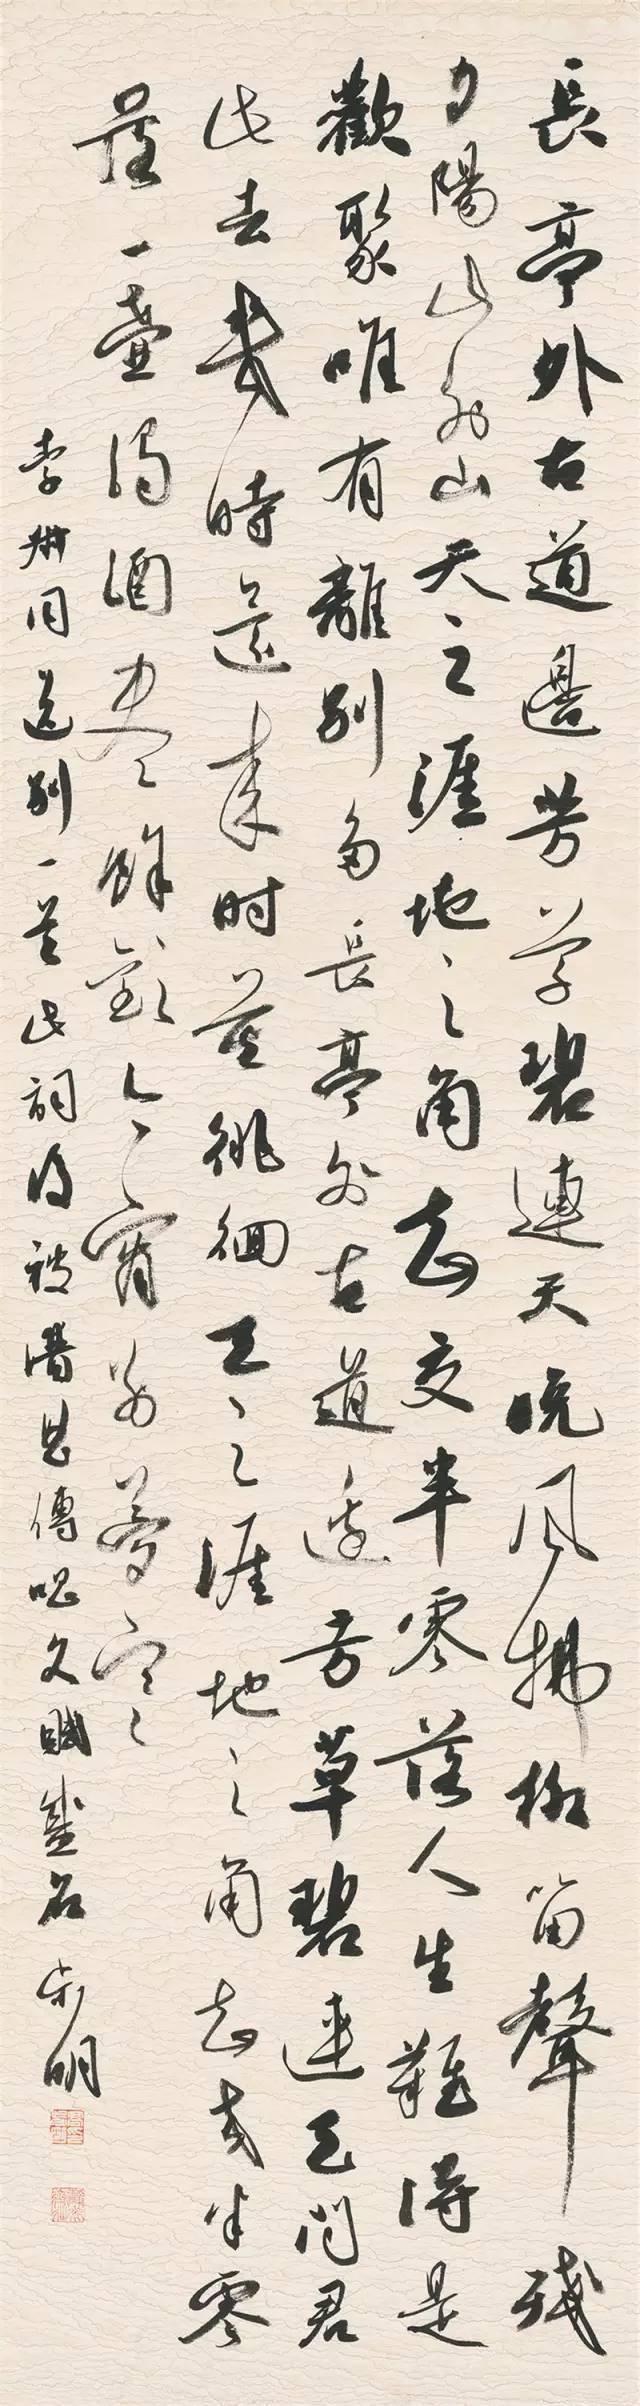 長亭外古道邊芳草碧連天晚風拂柳笛聲殘
夕陽山外山天之涯地之角知交半零落人生難得是
歡聚唯有離別多長亭外古道邊芳草碧連天问君
此去幾時還來时莫徘徊天之涯地之角知交半零
落一壺濁酒盡餘歡今宵别夢寒
李叔同送别一首此詞乃被譜曲傳唱久